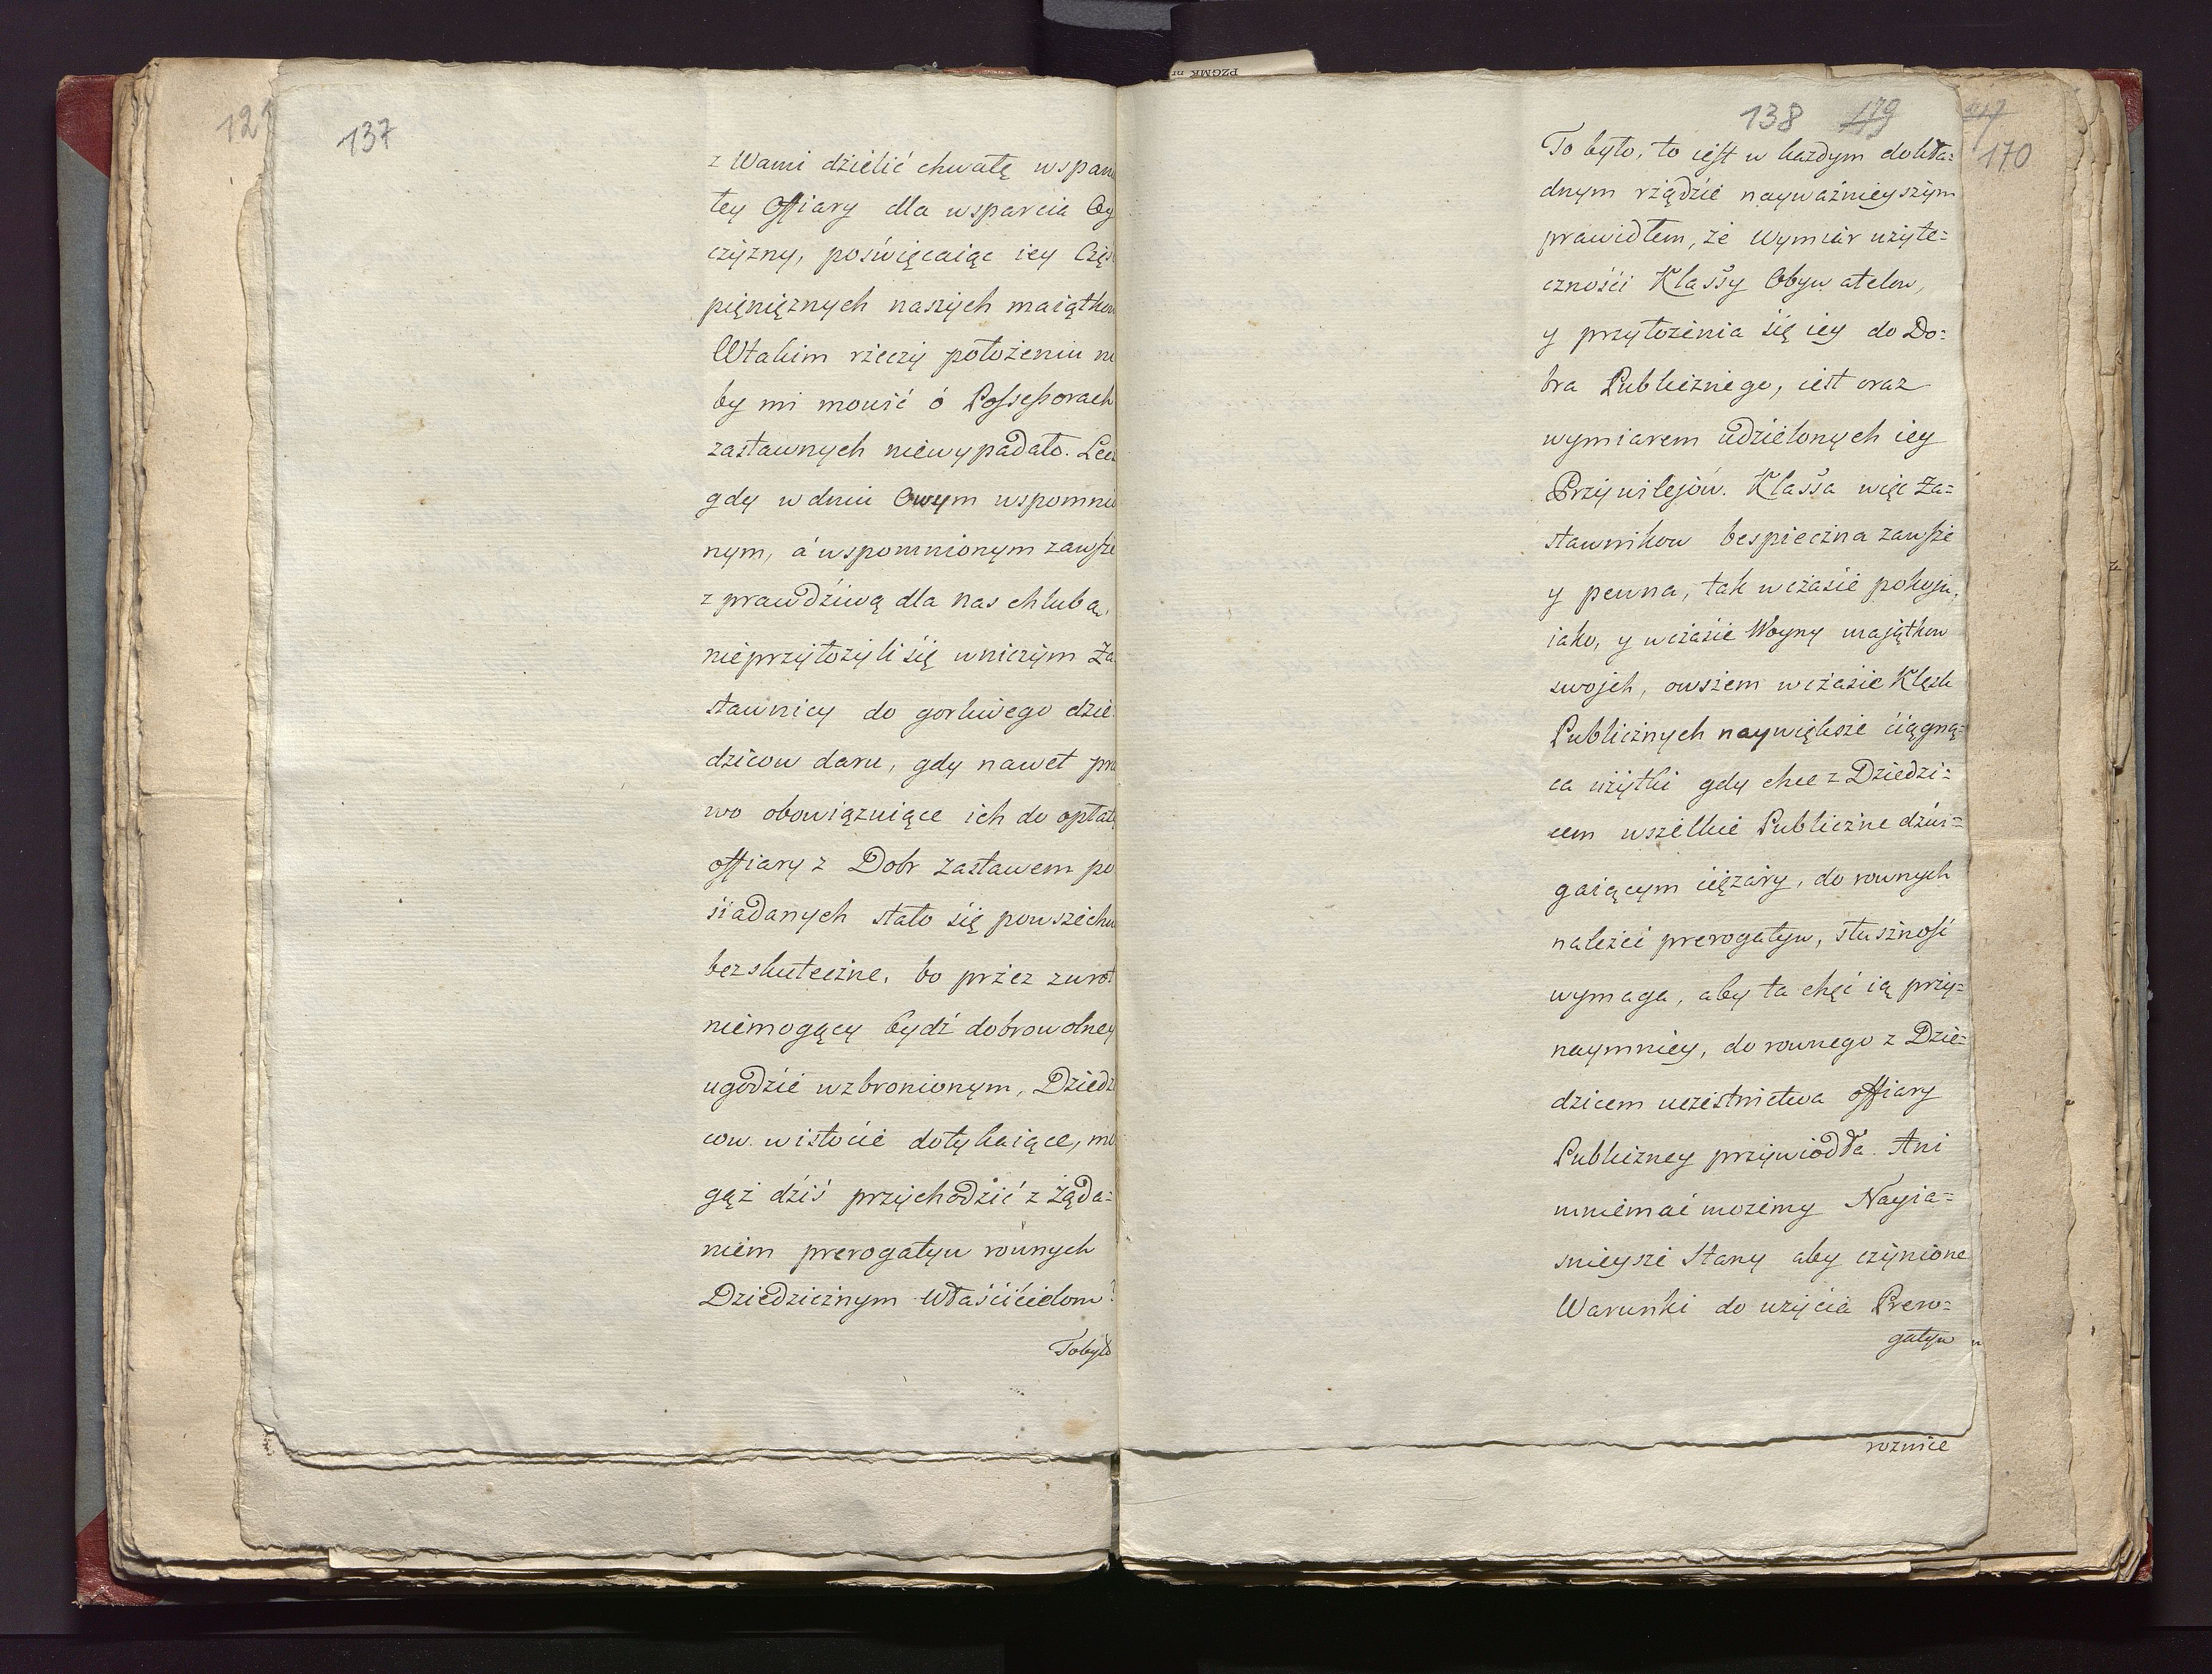 137
z Wami dzielić chwałę wspan
łey Offiary dla wsparcia Oy
czyzny, poświęcaiąc iey Częś
pięniężnych naszych maiątkow
Wtakim rzeczy położeniu ni
by mi mowić ó Possessorach
zastawnych niewypadało. Lecz
gdy wdniu Owym wspomnio
nym, á wspomnionym zawsze
z prawdźiwą dla nas chlubą,
nieprzyłożyli się wniczym Za
stawnicy do gorliwego dzie
dzicow daru, gdy nawet pra
wo obowiązuiące ich do opłaty
offiary z Dobr zastawem po
śiadanych stało się powszechn
bezskuteczne, bo przez zwrot
niemogący bydź dobrowolney
ugodzie wzbronionym, Dziedz
cow wistocie dotykaiące, mo
gąż dźiś przychodzić z żąda=
niem prerogatyw rownych
Dziedzicznym Właśćićielom?
Tobyło
138 179
To było, to iest w każdym dokła=
dnym rządzie nayważnieyszym
prawidłem, że Wymiar użyte=
cznośći Klassy Obywatelow,
y przyłożenia się iey do Do=
bra Publicznego, iest oraz
wymiarem udzielonych iey
Przywilejów. Klassa więc Za=
stawnikow bespieczna zawsze
y pewna, tak wczasie pokoju,
iako, y wczasie Woyny majątkow
swojch, owszem wczasie Klęsk
Publicznych naywiększe ciągną=
ca użytki gdy chce z Dziedzi=
cem wszelkie Publiczne dźwi=
gaiącym ciężary, do rownych
należeć prerogatyw, słuszność
wymaga, aby ta chęć ią przy=
naymniey, do rownego z Dzie=
dzicem uczestnictwa offiary
Publiczney przywiodła. Ani
mniemać możemy Nayia=
snieysze Stany aby czynione
Warunki do użycia Prero=
gatyw
170
roznice